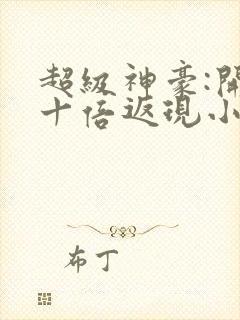 超級神豪:開
十倍返現小
布丁